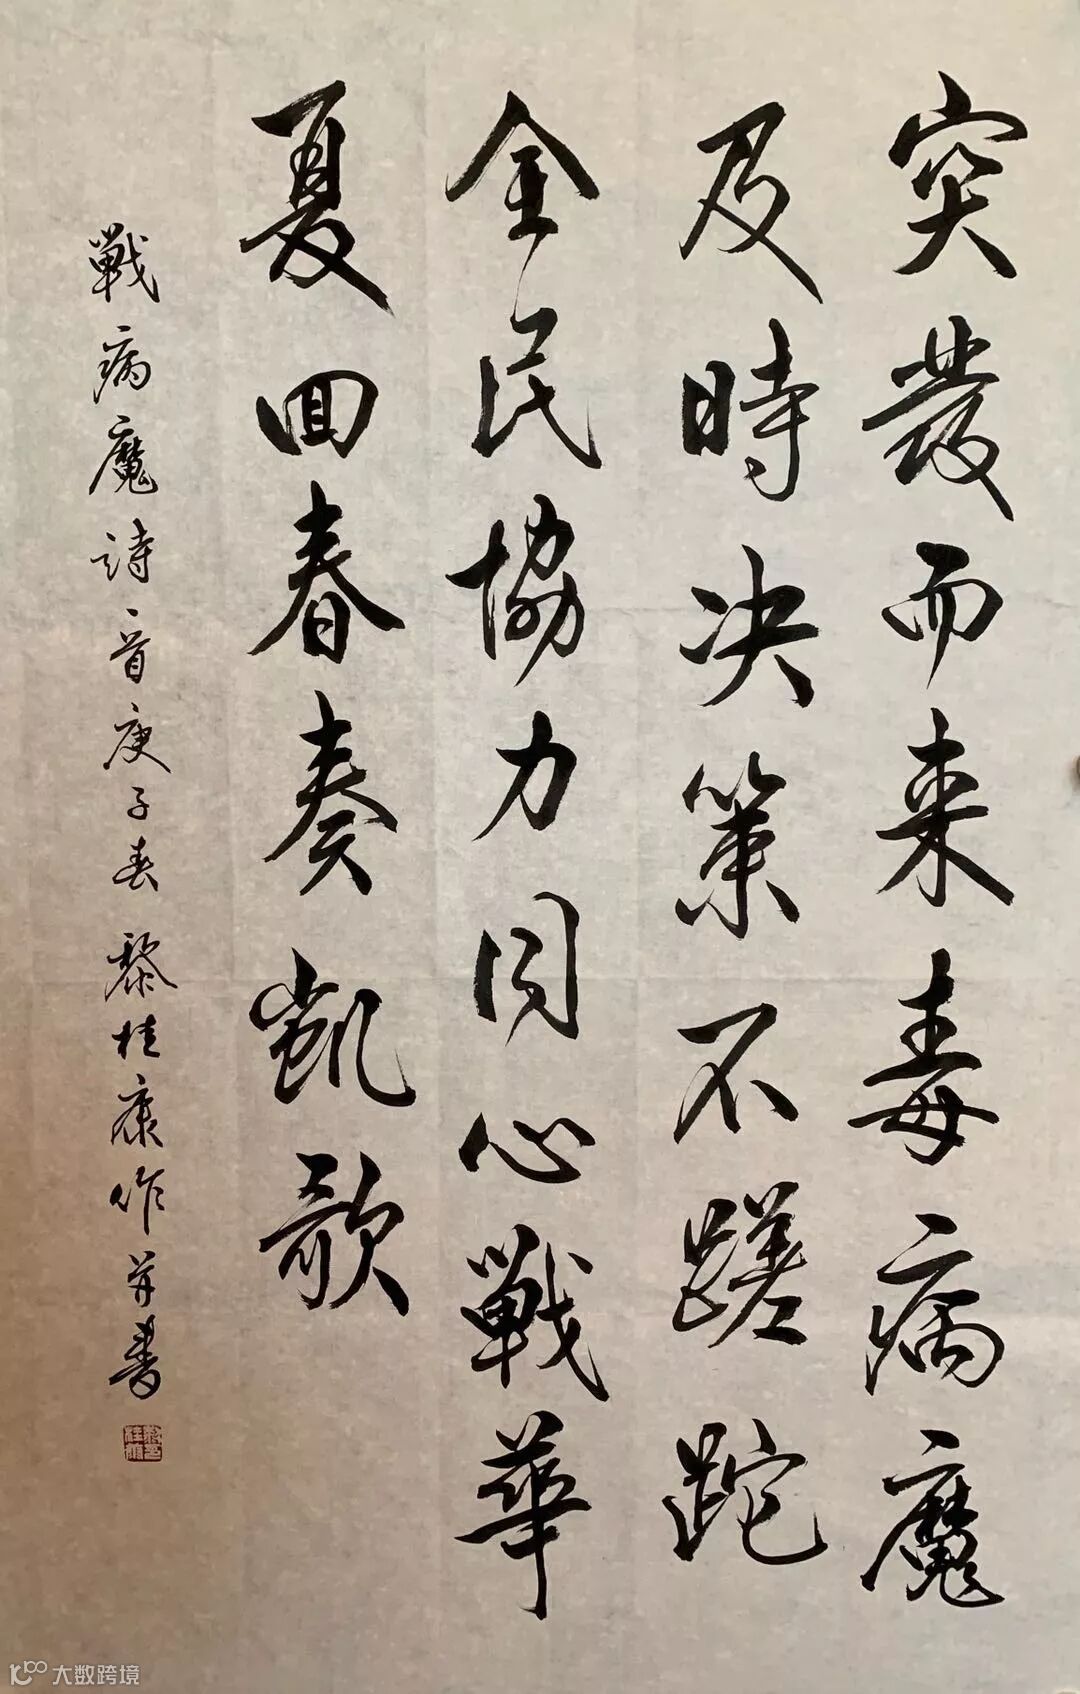 突發而来毒病魔
及時决策不蹉跎
全民協力同心戰華
夏回春奏凱歌
戰病魔詩一首庚子春黎桂康作并書
大数跨境